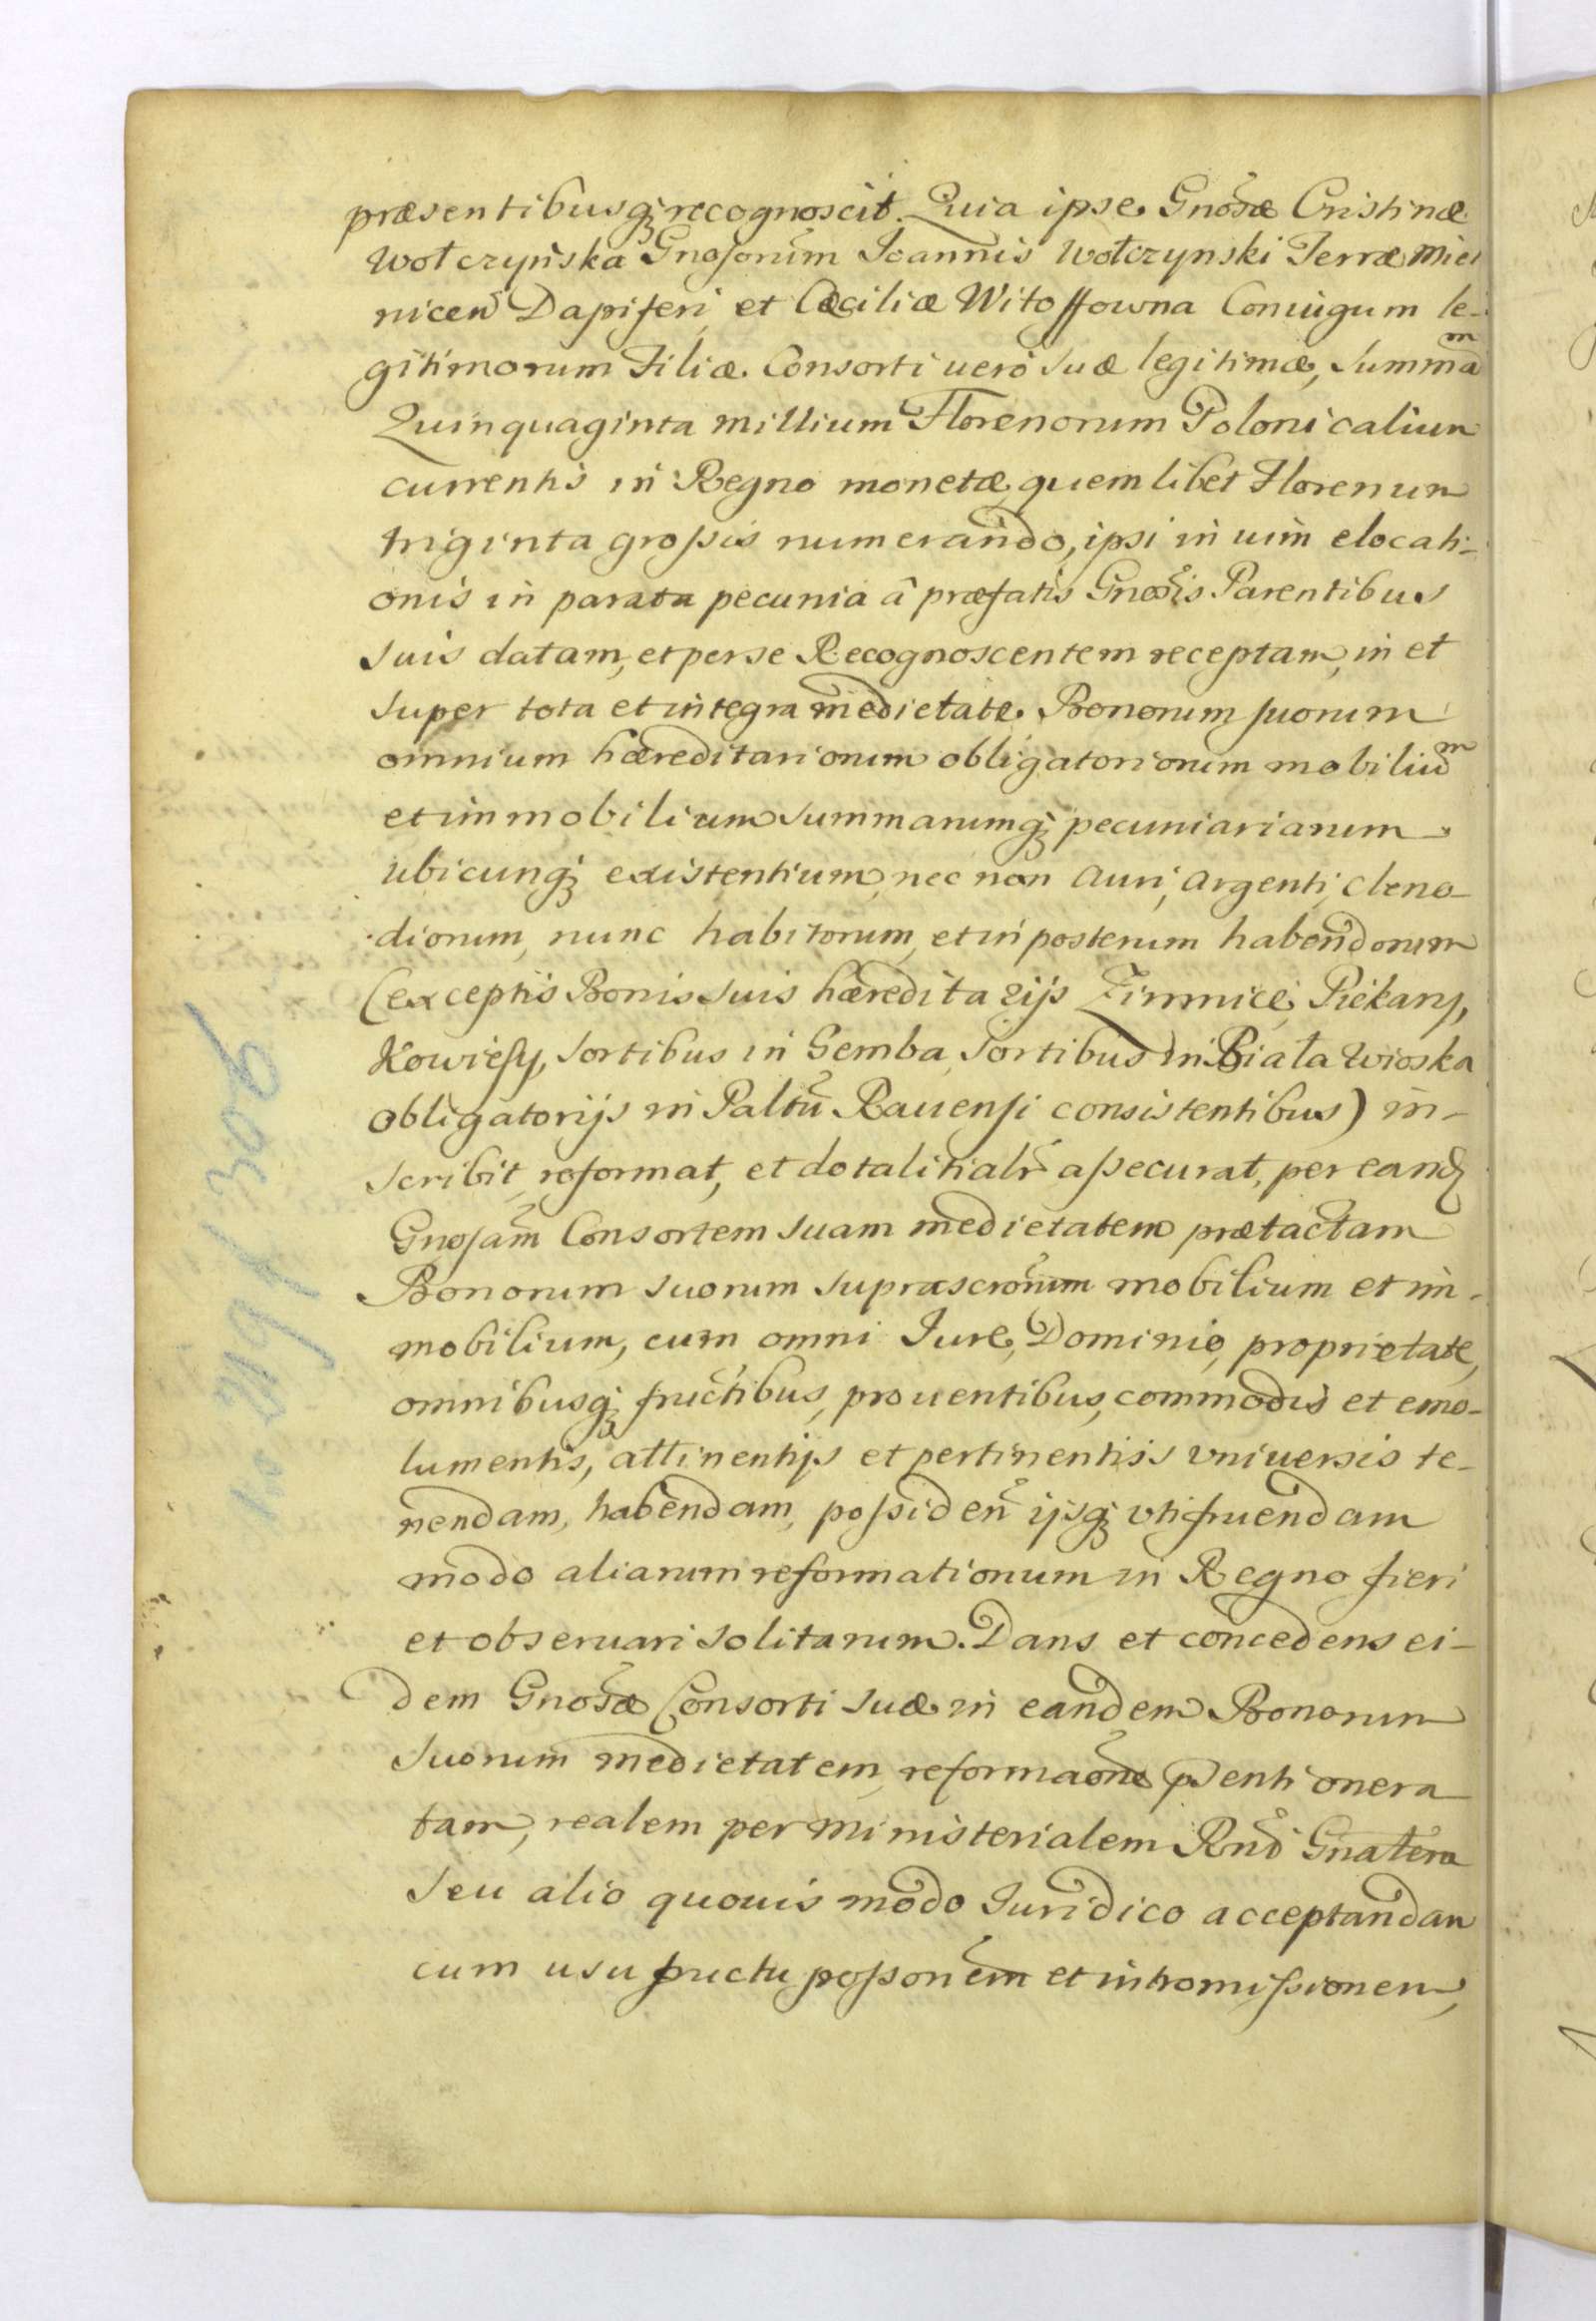 præsentibusq; recognoscit. Quia ipse Gnosæ Cristinæ
Wołczyńska Gnosorum Joannis Wołczynski Terræ Miel
nicen Dapiferi, et Cæciliæ Witoffowna Coniugum le-
gitimorum Filiæ. Consorti uerò suæ legitimæ, Summam
Quinquaginta millium Florenorum Polonicalium
currentis in Regno monetæ, quemlibet Florenum
triginta grossis numerando, ipsi in uim elocati-
onis in parata pecunia â præfatis Gnosis Parentibus
suis datam, et per se Recognoscentem receptam, in et
super tota et integra medietate. Bonorum suorum
omnium hæreditariorum obligatoriorum mobilium
et immobilium summarumq; pecuniariarum
ubicunq; existentium, nec non Auri, Argenti, Cleno-
diorum, nunc habitorum, et in posterum habendorum
(exceptis Bonis suis hæreditarijs Zimnice, Piekary,
Kowiesy, sortibus in Gemba, sortibus in Biała Wioska
obligatorijs in Paltu Rauensi consistentibus) in-
scribit, reformat, et dotalitialr assecurat, per eand
Gnosam Consortem suam medietatem prætactam
Bonorum suorum suprascronum mobilium et im-
mobilium, cum omni Iure, Dominio, proprietate,
omnibusq; fructibus, prouentibus, commodis et emo-
lumentis, attinentijs et pertinentiis vniuersis te-
nendam, habendam, possiden ijsq; vtifruendam
modo aliarum reformationum in Regno fieri
et obseruari solitarum. Dans et concedens ei-
dem Gnosæ Consorti suæ in eandem Bonorum
suorum medietatem, reformaone pnti onera
tam, realem per Ministerialem Rnd Gnalem
seu alio quouis modo Iuridico acceptandam
cum usufructu possonem et intromissionem,